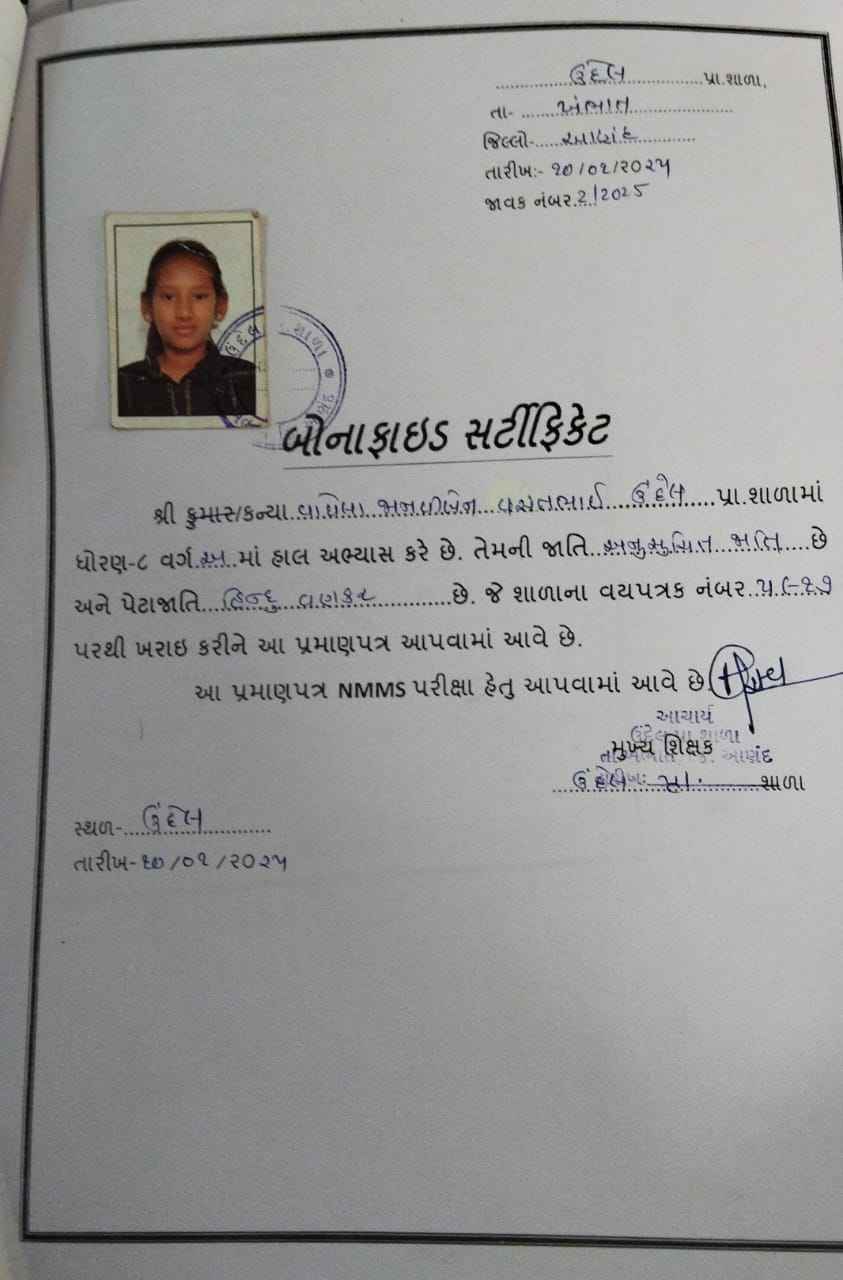 ઉંદેલ પ્રા.શાળા,
તા- ખંભાત
જિલ્લો- આણંદ
તારીખ:- ૧૭/૦૧/૨૦૨૫
જાવક નંબર.2/2025
બોનાફાઇડ સર્ટીફિકેટ
શ્રી કુમાર/કન્યા વાઘેલા વસંતભાઈ ઉંદેલ પ્રા.શાળામાં
ધોરણ-૮ વર્ગ અ માં હાલ અભ્યાસ કરે છે. તેમની જાતિ અનુસુચિત જાતિ છે
અને પેટાજાતિ હિન્દુ વણકર છે. જે શાળાના વયપત્રક નંબર
પરથી ખરાઇ કરીને આ પ્રમાણપત્ર આપવામાં આવે છે.
આ પ્રમાણપત્ર NMMS પરીક્ષા હેતુ આપવામાં આવે છે.
આચાર્ય
ઉંદેલ પ્રા શાળા
મુખ્ય શિક્ષક
આણંદ
ઉંદેલ પ્રા. શાળા
સ્થળ- ઉંદેલ
તારીખ- ૧૭/૦૧/૨૦૨૫